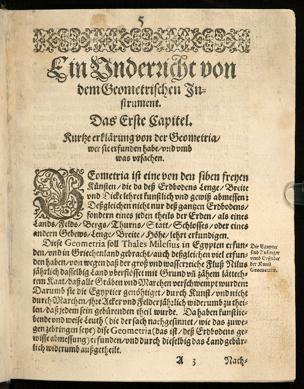 5
Ein Underricht von
dem Geometrischen In-
strument.
Das Erste Capitel.
Kurtze erklärung von der Geometria/
wer sie erfunden habe/ und umb
was ursachen.
GEometria ist eine von den siben freyen
Künsten/ die da deß Erdbodens Lenge/ Breite
und Dicke lehret kunstlich und gewiß abmessen:
Deßgleichen nicht nur deß gantzen Erdbodens/
sondern eines jeden theils der Erden/ als eines
Lands/ Felds/ Bergs/ Thurns/ Statt/ Schlosses/ oder eines
andern Gebews/ Lenge/ Breite/ Höhe/ lehrt erkundigen.
Diese Geometria soll Thales Milesius in Egypten erfun-
den/ und in Griechenland gebracht/ auch deßgleichen viel erfun-
den haben/ von wegen daß der groß und wasserreiche Fluß Nilus
jährlich dasselbig Land uberflösset mit Grund und zähem lättech-
tem Kaat/ daß alle Gräben und Marchen verschwempt wurden.
Darumb sie die Egyptier genöhtiget/ durch Kunst/ wo nicht
durch Marchen/ ihre Acker und Felder jährlich widerumb zu thei-
len/ daß jedem sein gebürendten theil wurde. Da haben künstlie-
bende und weise Leuth (die der sach nachgesinnet/ wie das zuwe-
gen zebringen seye) dise Geometria (das ist/ deß Erdbodens ge-
wisse abmessung) erfunden/ und durch dieselbig das Land gebür-
lich widerumb außgetheilt.
Die Egypter
sind Anfänger
und Erfinder
der Kunst
Geometria.
A 3 Nach-